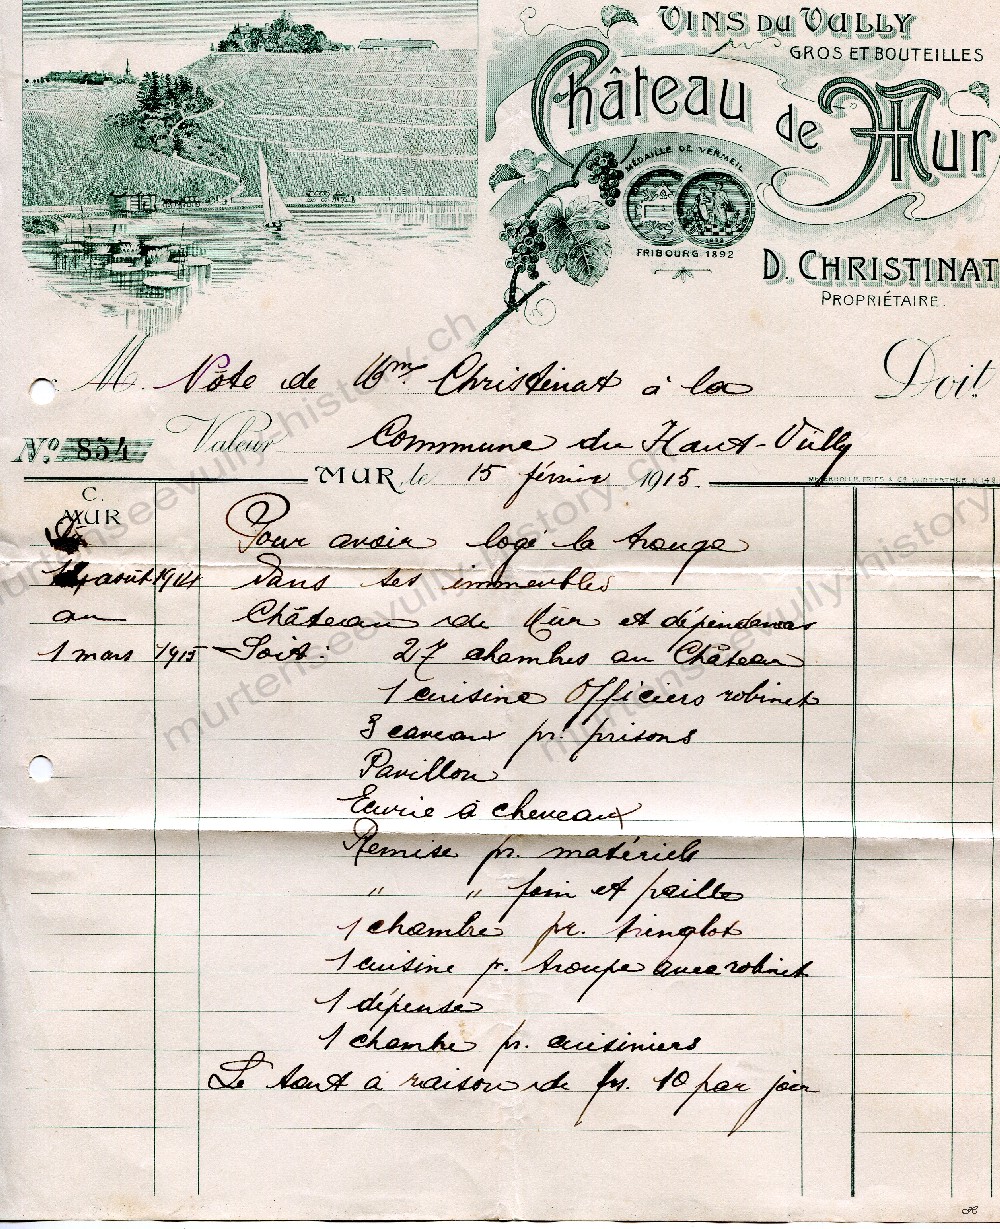 VINS DU VULLY
GROS ET BOUTEILLES
Château de Mur
MÉDAILLE DE VERMEIL
FRIBOURG 1892
D. CHRISTINAT
PROPRIÉTAIRE.
M. Note de Mme Christinat à la Doit.
No 854 Valeur Commune du Haut-Vully
MUR, le 15 février 1915.
C.
MUR
Pour avoir logé la troupe
août 1914 dans ses immeubles
au Château de Mur et dépendances
1 mars 1915 Soit: 27 chambres au Château
1 cuisine Officiers robinet
3 caveaux pr. prisons
Pavillon
Ecurie à cheveaux
Remise pr. matériels
" " foin et paille
1 chambre pr. tringlot
1 cuisine pr. troupe avec robinet
1 dépense
1 chambre pr. cuisiniers
Le tout à raison de frs. 10 par jour
murtenseevully-history.ch
murtenseevully-history.ch
murtenseevully-history.ch